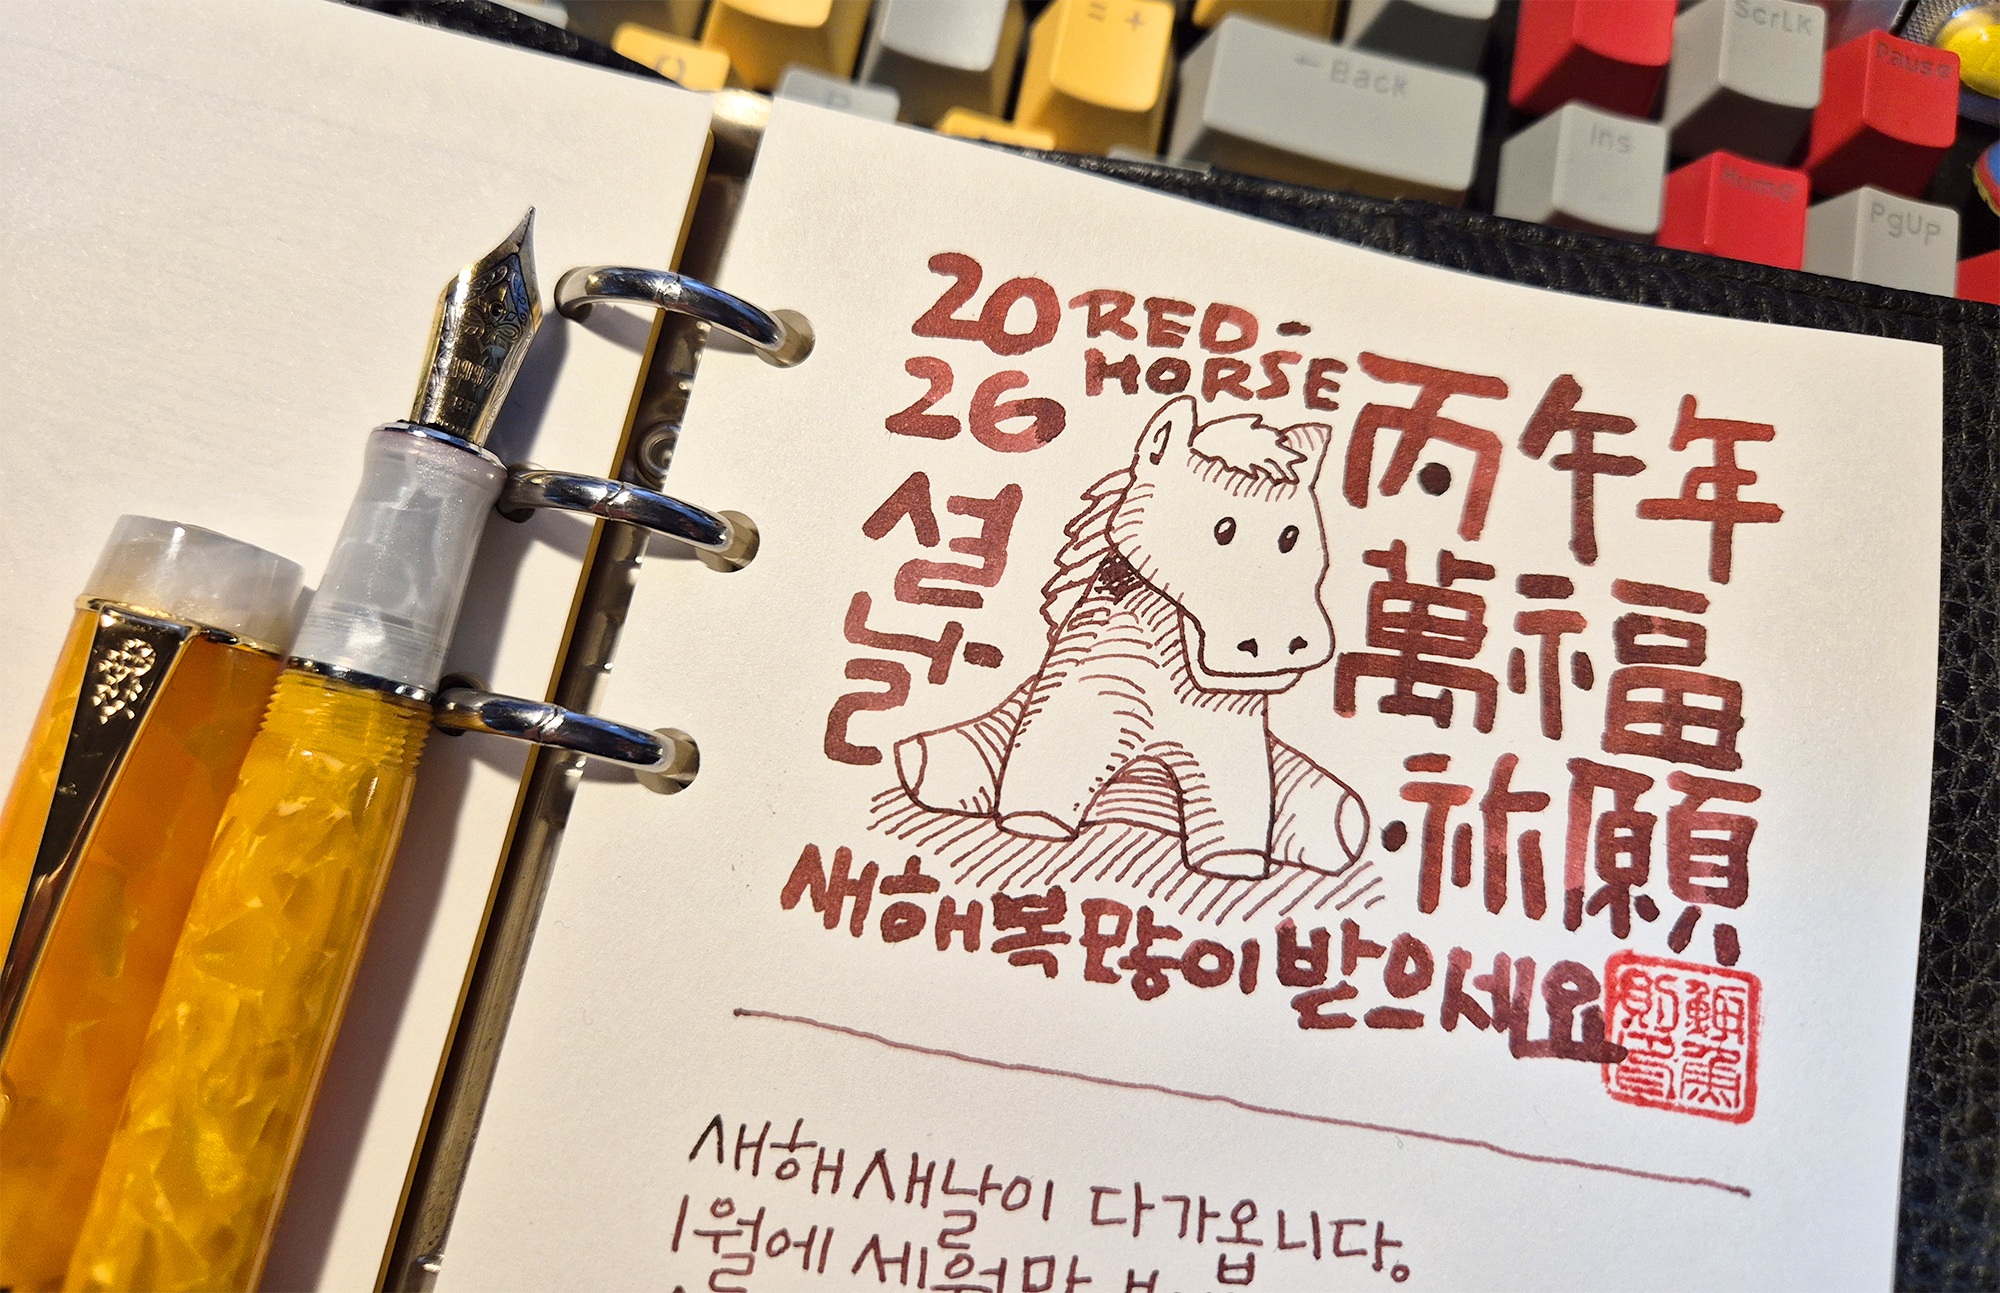 = +
← Back
ScrLK
Pause
Ins
Home
PgUp
P
2026
RED-HORSE
설날
丙午年
萬福
祈願
새해 복 많이 받으세요
새해 새날이 다가옵니다.
1월에 세월만